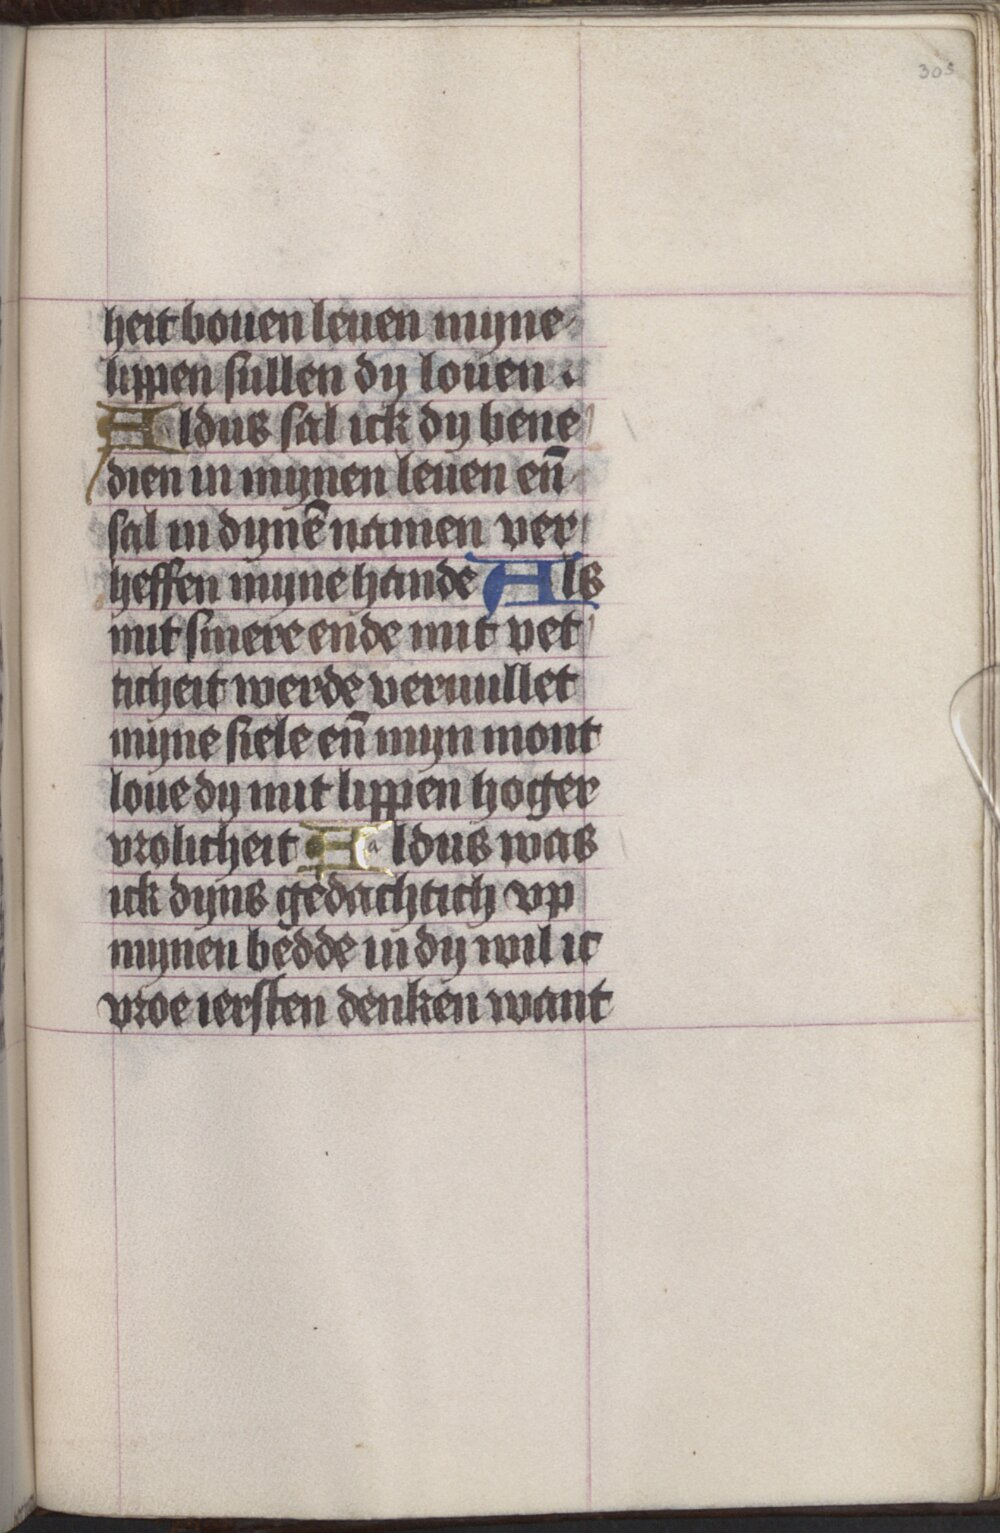 305
heit bouen leuen mijne
lippen sullen dij louen .
Aldus sal ick dij bene
dien in mijnen leuen en̄
sal in dijnē namen ver
heffen mijne hande Als
mit smere ende mit vet
ticheit werde veruullet
mijne siele en̄ mijn mont
loue dij mit lippen hoger
vrolicheit Aldus was
ick dijns gedachtich vp
mijnen bedde in dij wil ic
vroe iersten denken want